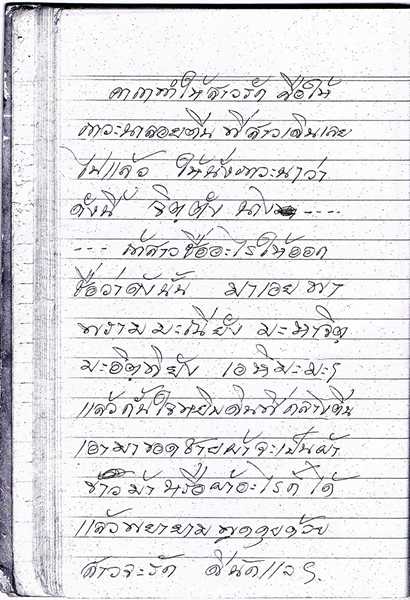 คาถาทำให้สาวรัก คือให้
ภาวะนาลอยตีน ที่สาวเดินเลย
ไปแล้ว ให้นั่งภาวะนาว่า
ดังนี้ จิตฺตัง นาง ----
---- ถ้าสาวชื่ออะไรให้ออก
ชื่อว่าดังนั้น มาเอย พา
พราม มะเนียัง มะหาจิตฺ
มะจิตฺพียัง เอหิมะมะๆ
แล้วกั้นใจหยิบดินที่กลางตีน
เอามาขอดชายผ้าจะเป็นผ้า
ขาวม้า หรือผ้าอะไรก็ได้
แล้วพยายาม พูดคุยด้วย
สาวจะรัก แลฯ